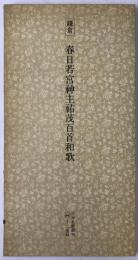 鎌倉
春日若宮神主祐茂百首和歌